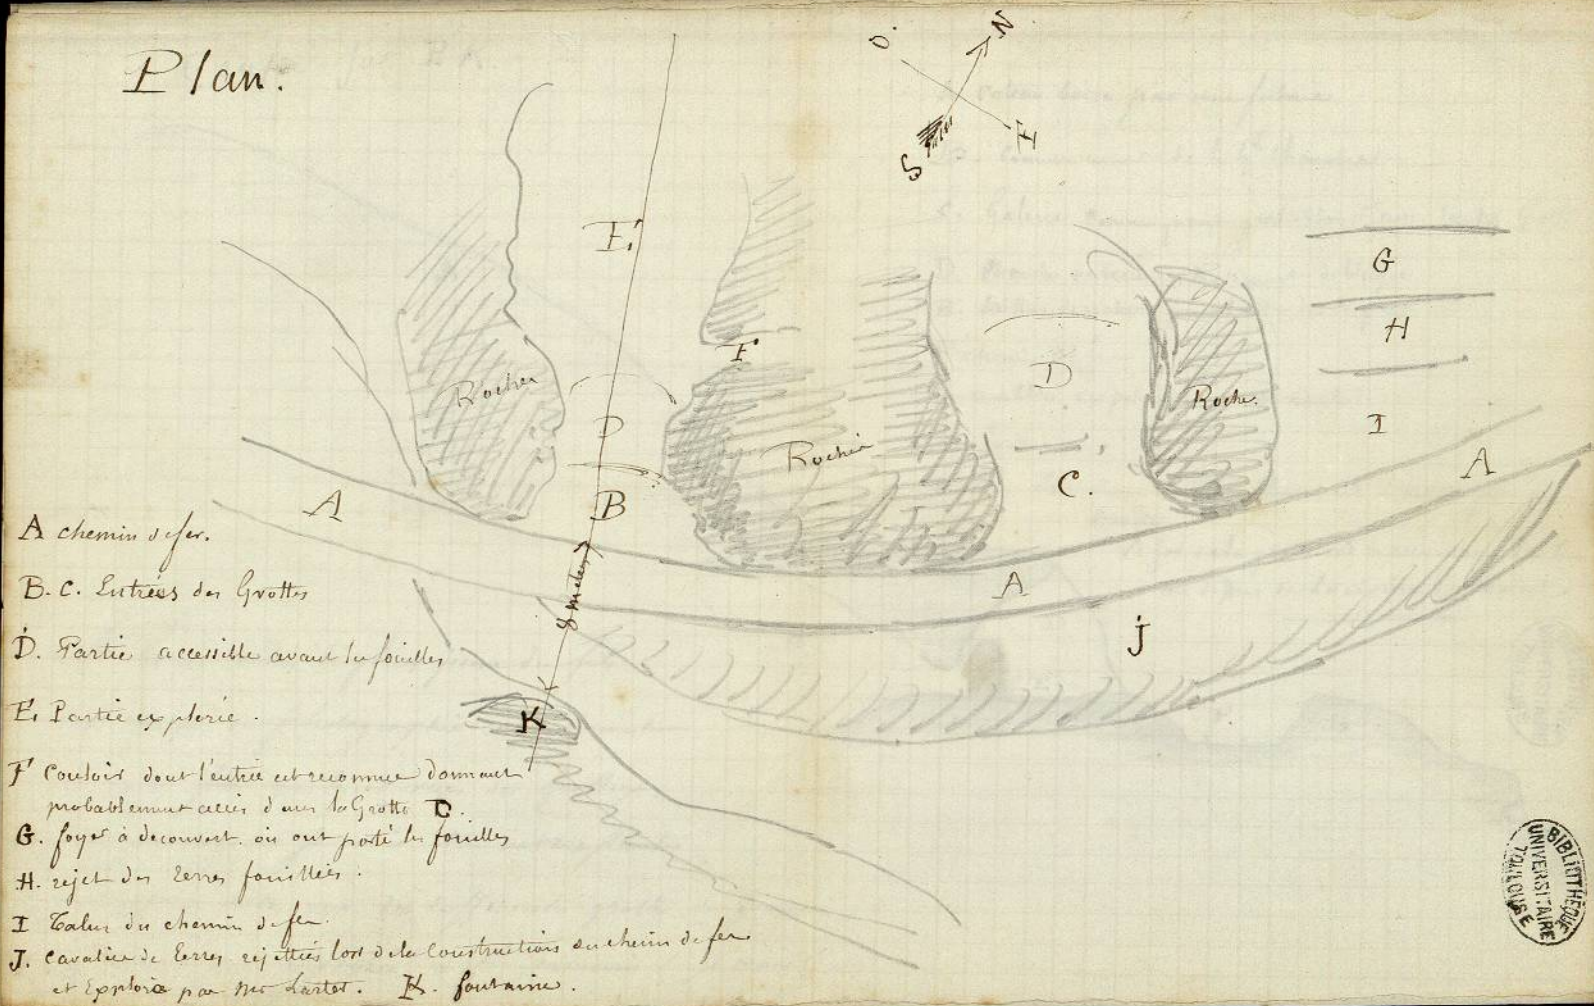 Plan.
O. N
S E
E.
G
F
H
D
Rocher
Roche.
D
I
Rocher
A
C.
B
A
A chemin de fer.
8 metres
A
B. C. Entrées des Grottes
J
D. Partie accessible avant les fouilles
E. Partie explorée.
K
F Couloir dont l'entrée est reconnue donnant
probablement accès dans la Grotte C.
G. foyer à decouvert. où ont porté les fouilles
H. rejet des terres fouillées.
I Talus du chemin de fer.
J. Cavalier de terres rejettées lors de la construction du chemin de fer
et Exploré par Mr Lartet. K. fontaine.
BIBLIOTHEQUE
UNIVERSITAIRE
TOULOUSE